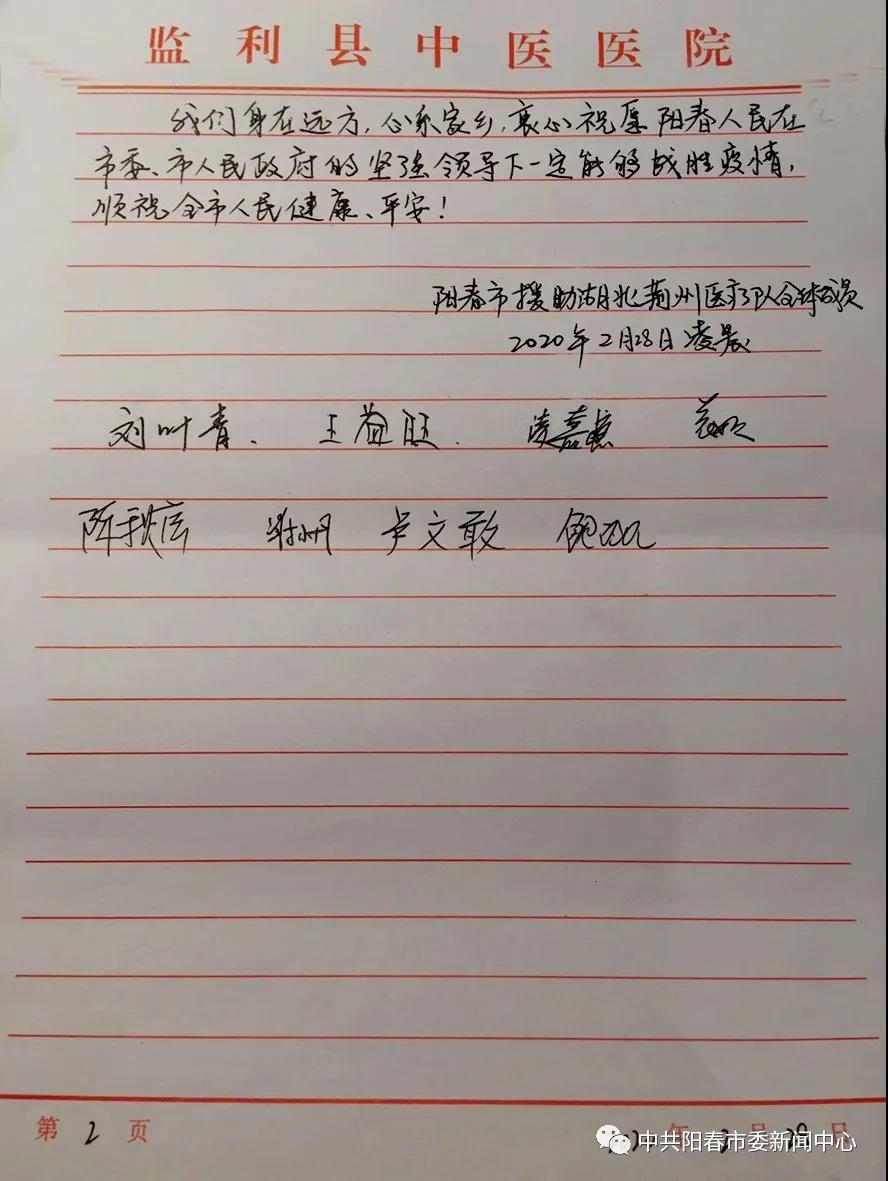 监利县中医医院
我们身在远方，心系家乡，衷心祝愿阳春人民在
市委、市人民政府的坚强领导下一定能够战胜疫情，
顺祝全市人民健康、平安！
阳春市援助湖北荆州医疗队全体成员
2020年2月28日凌晨
刘叶青、王益旺
卢文敢
第2页
年 月 日
中共阳春市委新闻中心